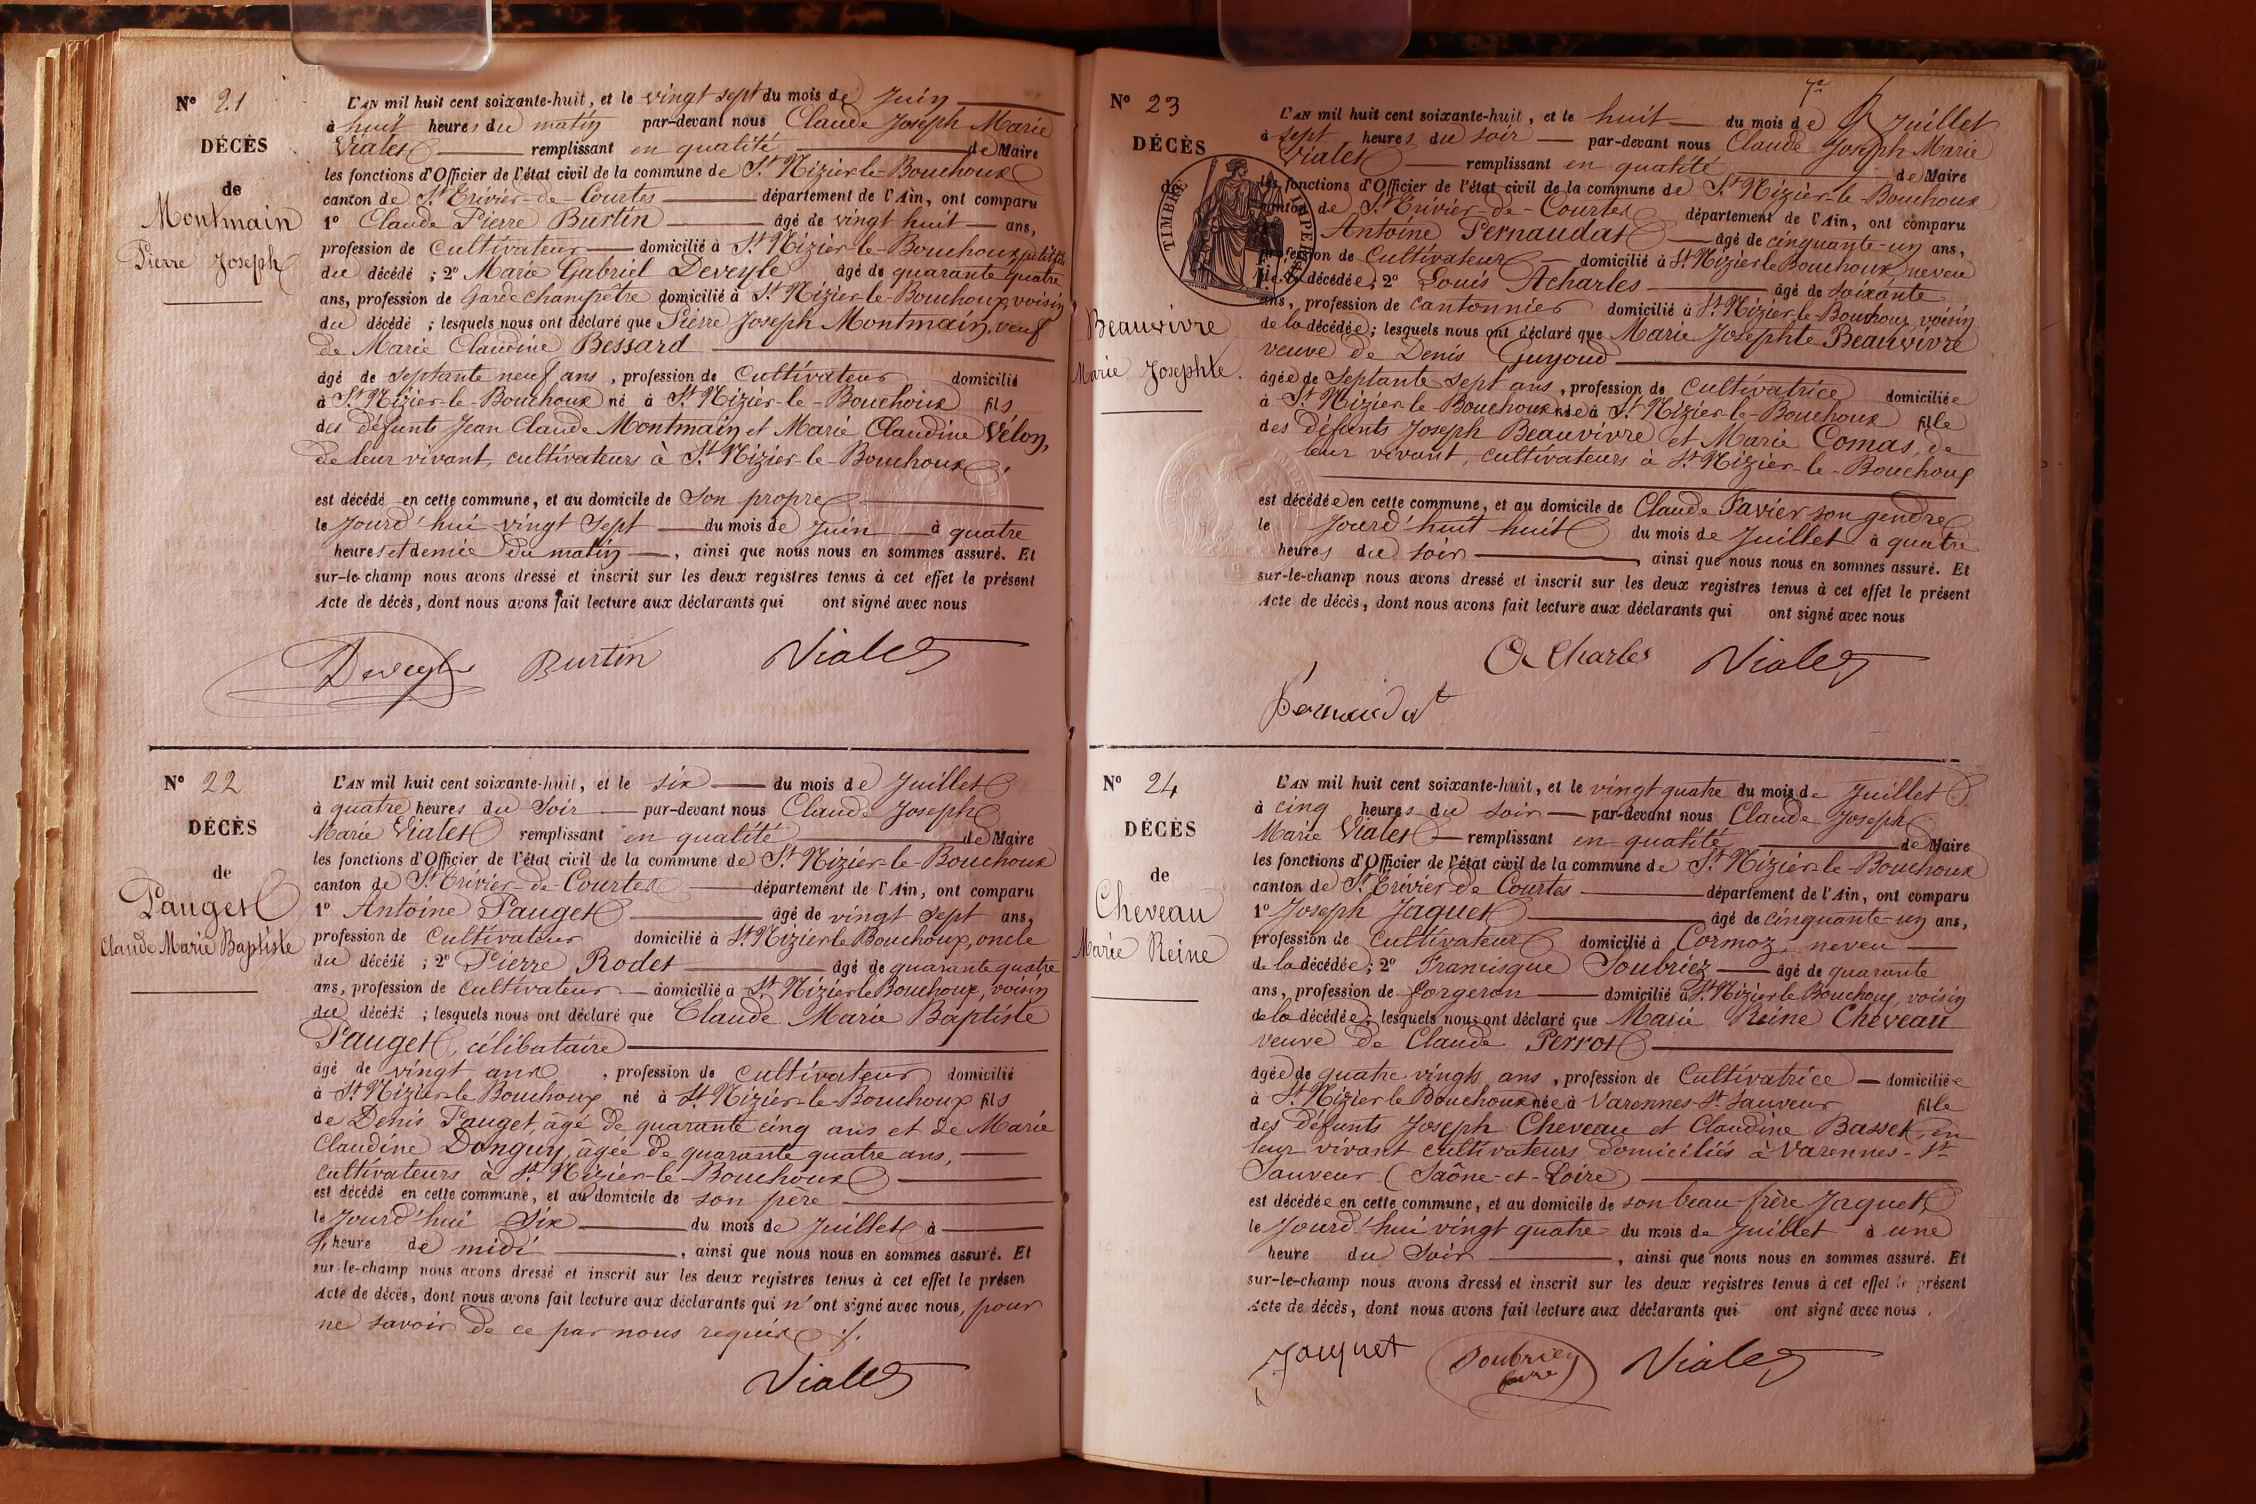 N° 21
DÉCÈS
de
Montmain
Pierre Joseph
L'AN mil huit cent soixante-huit, et le vingt sept du mois de Juin
à huit heures du matin par-devant nous Claude Joseph Marie
Vialet remplissant en qualité de Maire
les fonctions d'Officier de l'état civil de la commune de St Nizier-le-Bouchoux
canton de St Trivier-de-Courtes département de l'Ain, ont comparu
1° Claude Pierre Burtin âgé de vingt huit ans,
profession de Cultivateur domicilié à St Nizier-le-Bouchoux, petit fils
du décédé ; 2° Marie Gabriel Deveyle âgé de quarante quatre
ans, profession de Garde champêtre domicilié à St Nizier-le-Bouchoux, voisin
du décédé ; lesquels nous ont déclaré que Pierre Joseph Montmain, veuf
de Marie Claudine Bessard
âgé de septante neuf ans, profession de Cultivateur domicilié
à St Nizier-le-Bouchoux né à St Nizier-le-Bouchoux fils
des défunts Jean Claude Montmain et Marie Claudine Vélon,
de leur vivant, cultivateurs à St Nizier-le-Bouchoux.
est décédé en cette commune, et au domicile de Son propre
le jourd'hui vingt sept du mois de Juin à quatre
heures et demie du matin, ainsi que nous nous en sommes assuré. Et
sur-le-champ nous avons dressé et inscrit sur les deux registres tenus à cet effet le présent
Acte de décès, dont nous avons fait lecture aux déclarants qui ont signé avec nous
Deveyle Burtin Vialet
N° 22
DÉCÈS
de
Pauget
Claude Marie Baptiste
L'AN mil huit cent soixante-huit, et le six du mois de Juillet
à quatre heures du Soir par-devant nous Claude Joseph
Marie Vialet remplissant en qualité de Maire
les fonctions d'Officier de l'état civil de la commune de St Nizier-le-Bouchoux
canton de St Trivier-de-Courtes département de l'Ain, ont comparu
1° Antoine Pauget âgé de vingt sept ans,
profession de Cultivateur domicilié à St Nizier le Bouchoux, oncle
du décédé ; 2° Pierre Rodet âgé de quarante quatre
ans, profession de Cultivateur domicilié à St Nizier le Bouchoux, voisin
du décédé ; lesquels nous ont déclaré que Claude Marie Baptiste
Pauget, célibataire
âgé de vingt ans, profession de Cultivateur domicilié
à St Nizier-le Bouchoux né à St Nizier-le-Bouchoux fils
de Denis Pauget, âgé de quarante cinq ans et de Marie
Claudine Donguy, âgée de quarante quatre ans,
Cultivateurs à St Nizier-le-Bouchoux
est décédé en cette commune, et au domicile de son père
le Jourd'hui Six du mois de Juillet à
heure de midi, ainsi que nous nous en sommes assuré. Et
sur-le-champ nous avons dressé et inscrit sur les deux registres tenus à cet effet le présen
Acte de décès, dont nous avons fait lecture aux déclarants qui n'ont signé avec nous, pour
ne savoir de ce par nous requis ./.
Vialet
7e
N° 23
DÉCÈS
de
TIMBRE IMPERIAL
Beauvivre
Marie Josephte.
L'AN mil huit cent soixante-huit, et le huit du mois de Juillet
à Sept heures du soir par-devant nous Claude Joseph Marie
Vialet remplissant en qualité de Maire
les fonctions d'Officier de l'état civil de la commune de St Nizier-le-Bouchoux
canton de St Trivier-de-Courtes département de l'Ain, ont comparu
Antoine Pernaudat âgé de cinquante-un ans,
profession de Cultivateur domicilié à St Nizier le Bouchoux, neveu
de la décédée ; 2° Louis Acharles âgé de soixante
ans, profession de cantonnier domicilié à St Nizier-le-Bouchoux, voisin
de la décédée ; lesquels nous ont déclaré que Marie Josephte Beauvivre
veuve de Denis Guyoud
âgée de Septante sept ans, profession de Cultivatrice domiciliée
à St Nizier-le-Bouchoux née à St Nizier-le-Bouchoux fille
des défunts Joseph Beauvivre et Marie Comas, de
leur vivant, cultivateurs à St Nizier-le-Bouchoux
est décédée en cette commune, et au domicile de Claude Favier son gendre
le Jourd'huit huit du mois de Juillet à quatre
heures du soir, ainsi que nous nous en sommes assuré. Et
sur-le-champ nous avons dressé et inscrit sur les deux registres tenus à cet effet le présent
Acte de décès, dont nous avons fait lecture aux déclarants qui ont signé avec nous
Acharles Vialet
Pernaudat
N° 24
DÉCÈS
de
Cheveau
Marie Reine
L'AN mil huit cent soixante-huit, et le vingt quatre du mois de Juillet
à cinq heures du soir par-devant nous Claude Joseph
Marie Vialet remplissant en qualité de Maire
les fonctions d'Officier de l'état civil de la commune de St Nizier-le-Bouchoux
canton de St Trivier de Courtes département de l'Ain, ont comparu
1° Joseph Jaquet âgé de cinquante-un ans,
profession de Cultivateur domicilié à Cormoz, neveu
de la décédée ; 2° Francisque Soubriez âgé de quarante
ans, profession de forgeron domicilié à St Nizier le Bouchoux, voisin
de la décédée ; lesquels nous ont déclaré que Marie Reine Cheveau
veuve de Claude Perrot
âgée de quatre vingts ans, profession de Cultivatrice domiciliée
à St Nizier le Bouchoux née à Varennes-St Sauveur fille
des défunts Joseph Cheveau et Claudine Basset, en
leur vivant cultivateurs domiciliés à Varennes-St
Sauveur (Saône-et-Loire)
est décédée en cette commune, et au domicile de son beau-frère Jaquet
le Jourd'hui vingt quatre du mois de Juillet à une
heure du Soir, ainsi que nous nous en sommes assuré. Et
sur-le-champ nous avons dressé et inscrit sur les deux registres tenus à cet effet le présent
Acte de décès, dont nous avons fait lecture aux déclarants qui ont signé avec nous.
Jaquet Soubriez Vialet